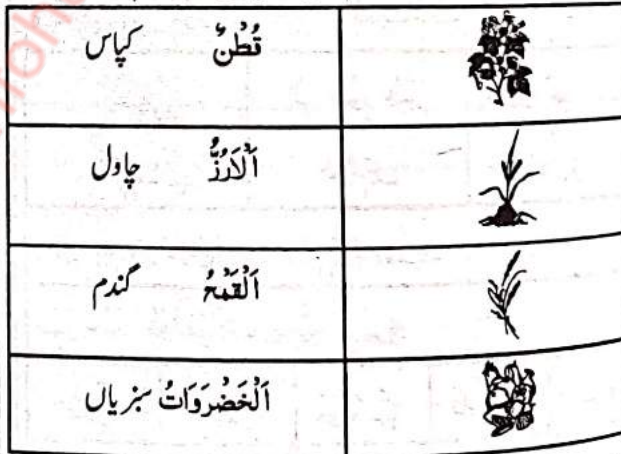 قُطْنٌ کپاس
اَلْاَرُزُّ چاول
اَلْقَمْحُ گندم
اَلْخَضْرَوَاتُ سبزیاں